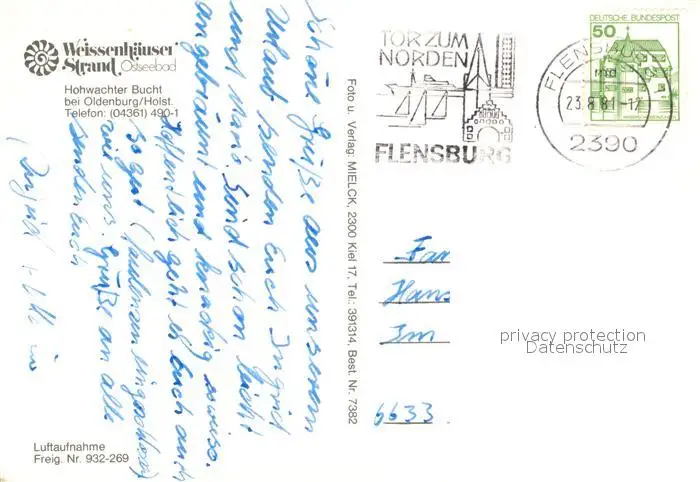 Weissenhäuser
Strand, Ostseebad
Hohwachter Bucht
bei Oldenburg/Holst.
Telefon: (04361) 490-1
Schöne Grüße aus unserem
Urlaub senden Euch Ingrid
und Mario. Sind schon leicht
angebräunt und
Hoffentlich geht es Euch auch
so gut
wie uns. Grüße an alle
senden Euch
Ingrid +
Luftaufnahme
Freig. Nr. 932-269
Foto u. Verlag: MIELCK, 2300 Kiel 17, Tel.: 391314, Best. Nr. 7382
TOR ZUM
NORDEN
FLENSBURG
FLENSBURG
md
23.8.81-12
2390
DEUTSCHE BUNDESPOST
50
Fam
Hans
Im
6633
privacy protection
Datenschutz